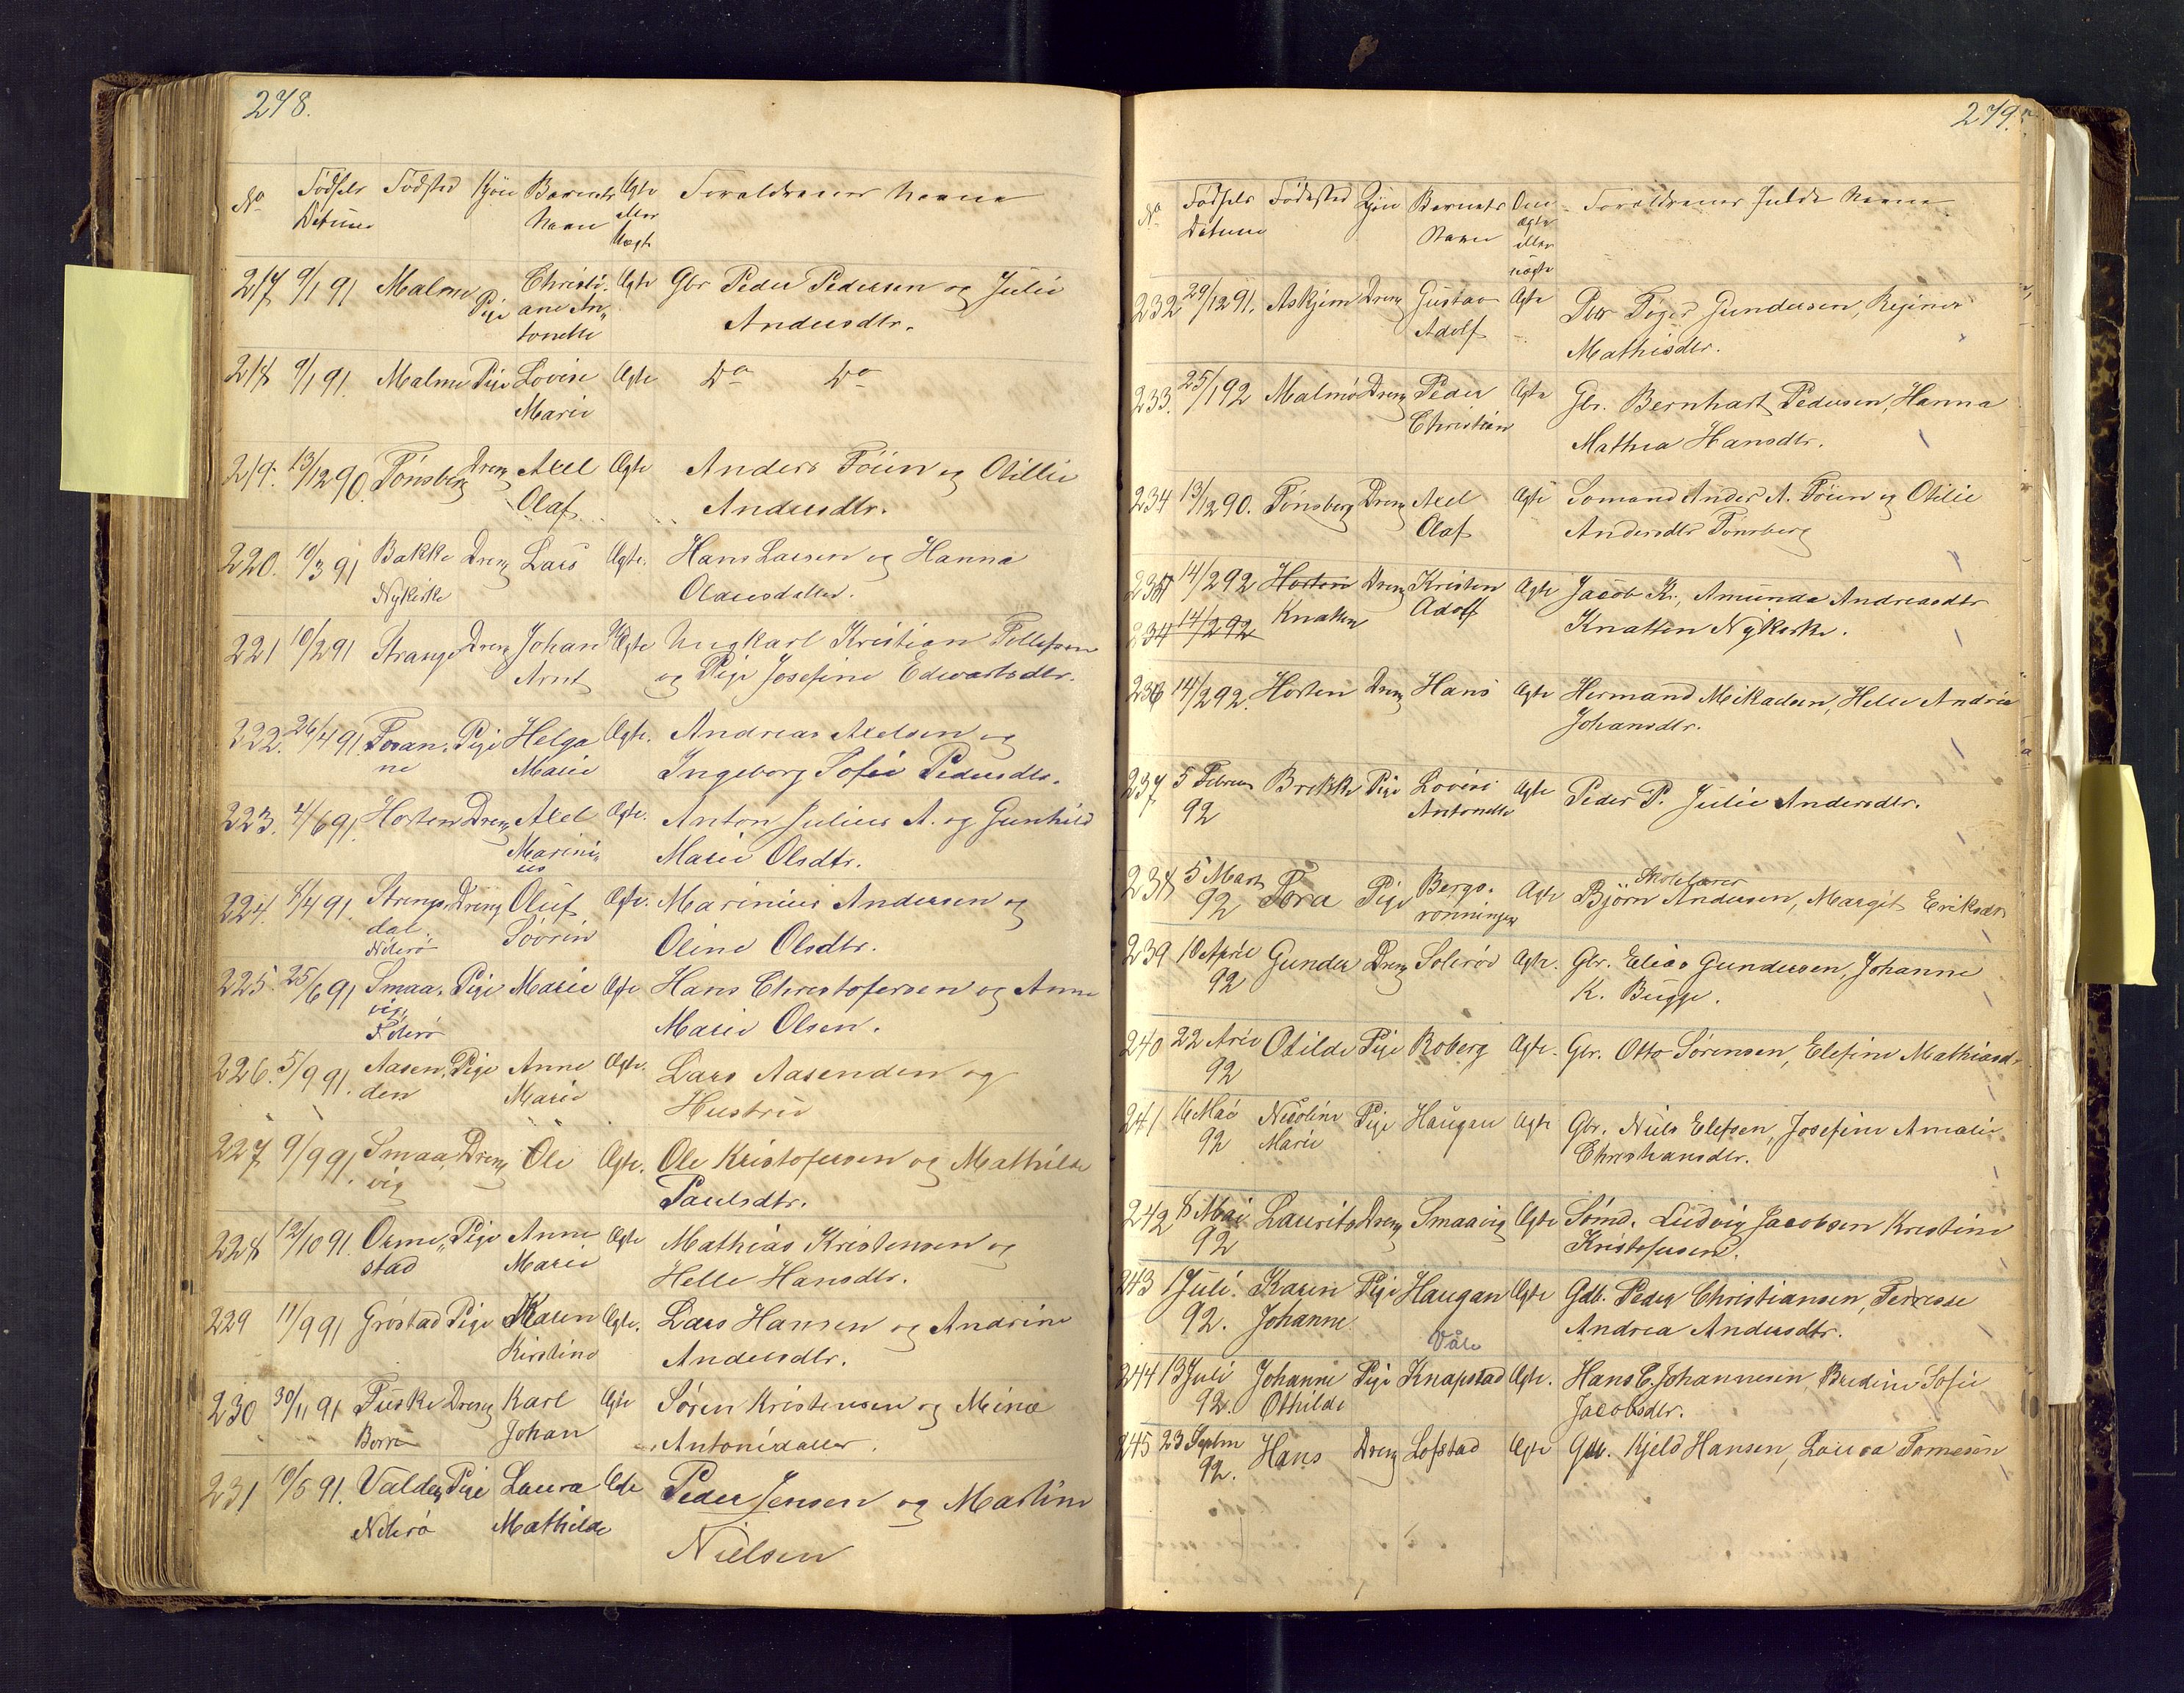 278.
No Fødsels Datum Fødsted Kjøn Barnets Navn Ægte eller Uægte Foreldrenes Navne
217 9/1 91 Malmø Pige Christiane Antonette Ægte Gbr Peder Pedersen og Julie
Andersdtr.
218 9/1 91. Malmø Pige Lovise Marie Ægte Do Do
219. 13/12 90. Tönsberg Dreng Axel Olaf Ægte Anders Föien og Otillie
Andersdtr.
220. 10/3 91 Bakke Nykirke Dreng Lars Ægte. Hans Larsen og Hanna
Olausdatter.
221 10/2 91 Strange Dreng Johan Arnt Uægte Ungkarl Kristian Tollefsen
og Pige Josefine Edvartsdtr.
222. 26/4 91 Foran ne Pige Helga Marie Ægte. Andreas Axelsen og
Ingeborg Sofie Pedersdtr.
223. 4/6 91. Horten Dreng Axel Marinius Ægte. Anton Julius A. og Gunhild
Marie Olsdtr.
224. 8/4 91. Strengsdal Nöterö Dreng Oluf Sövrin Ægte. Marinius Andersen og
Oline Olsdtr.
225. 25/6 91 Smaavig Nöterö Pige Marie Ægte Hans Christofersen og Anne
Marie Olsen.
226. 5/9 91. Aasenden Pige Anne Marie Ægte. Lars Aasenden og
Hustru
227 9/9 91. Smaavig Dreng Ole Ægte. Ole Kristofersen og Mathilde
Paulsdtr.
228 12/10 91. Ormestad Pige Anne Marie Ægte Mathias Kristensen og
Helle Hansdtr.
229 11/9 91 Gröstad Pige Karen Kirstine Ægte. Lars Hansen og Andrine
Andersdtr.
230 30/11 91 Fuske Borre Dreng Karl Johan Ægte Sören Kristensen og Mina
Antonidatter.
231 10/5 91. Valdeg Nöterö Pige Laura Mathilde Ægte Peder Jensen og Martine
Nielsen
279.
No Fødsels Datum Fødested Kjøn Barnets Navn Om ægte eller uægte Foreldrenes fulde Navne
232 29/12 91. Askjem Dreng Gustav Adolf Ægte Peder Töger Gundersen, Regine
Mathisdtr.
233. 25/1 92 Malmö Dreng Peder Christian Ægte Gbr. Bernhart Pedersen, Hanna
Mathea Hansdtr.
234 13/12 90. Tönsberg Dreng Axel Olaf Ægte Sömand Anders A. Föien og Otilie
Andersdtr Tönsberg
235 14/2 92 Horten Knatten Dreng Kristen Adolf Ægte Jacob Kr., Amunda Andreasdtr
234 14/2 92 Knatten Nykirke.
236 14/2 92. Horten Dreng Hans Ægte Hermand Mikaelsen, Helle Andrea
Johansdtr.
237 5 Februa 92 Brekke Pige Lovise Antonette Ægte Peder P. Julie Andersdtr.
238 5 Marts 92 Tora Pige Bergsrønningen Ægte Skolelærer Björn Andersen, Margit Eriksdtr
239 10 April 92 Gunder Dreng Solerød Ægte. Gbr. Elias Gundersen, Johanne
K. Bugge.
240 22 April 92 Otilde Pige Roberg Ægte. Gbr. Otto Sörensen, Elefine Mathiasdtr
241 16 Mai 92 Nicoline Marie Pige Haugan Ægte Gbr. Niels Elefsen, Josefine Amalie
Christiansdtr.
242 8 Mai 92 Laurits Dreng Smaavig Ægte Sömd. Ludvig Jacobsen Kristine
Kristofersen.
243 1 Juli 92. Karen Johanne Pige Haugan Ægte Gdb. Peder Christiansen, Terresse
Andrea Andersdtr.
244 13 Juli 92. Johanne Othilde Pige Våle Knapstad Ægte. Hans C. Johannesen, Bredine Sofie
Jacobsdtr.
245 23 Septm 92. Hans Dreng Lofstad Ægte Gdb. Kjeld Hansen, Laura Tomesen